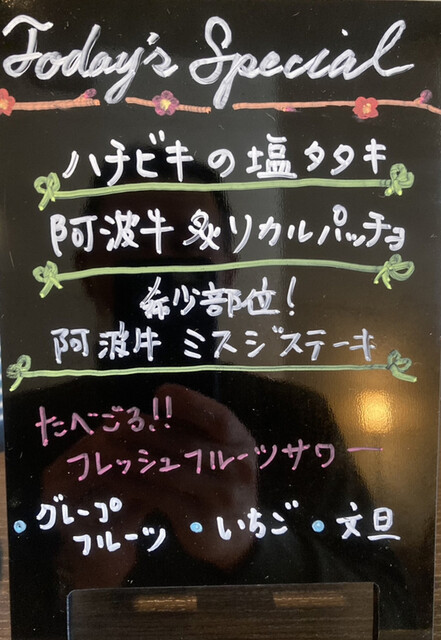 Today's Special
ハチビキの塩タタキ
阿波牛炙リカルパッチョ
希少部位!
阿波牛 ミスジステーキ
たべごろ!!
フレッシュフルーツサワー
・グレープ
フルーツ ・いちご ・文旦